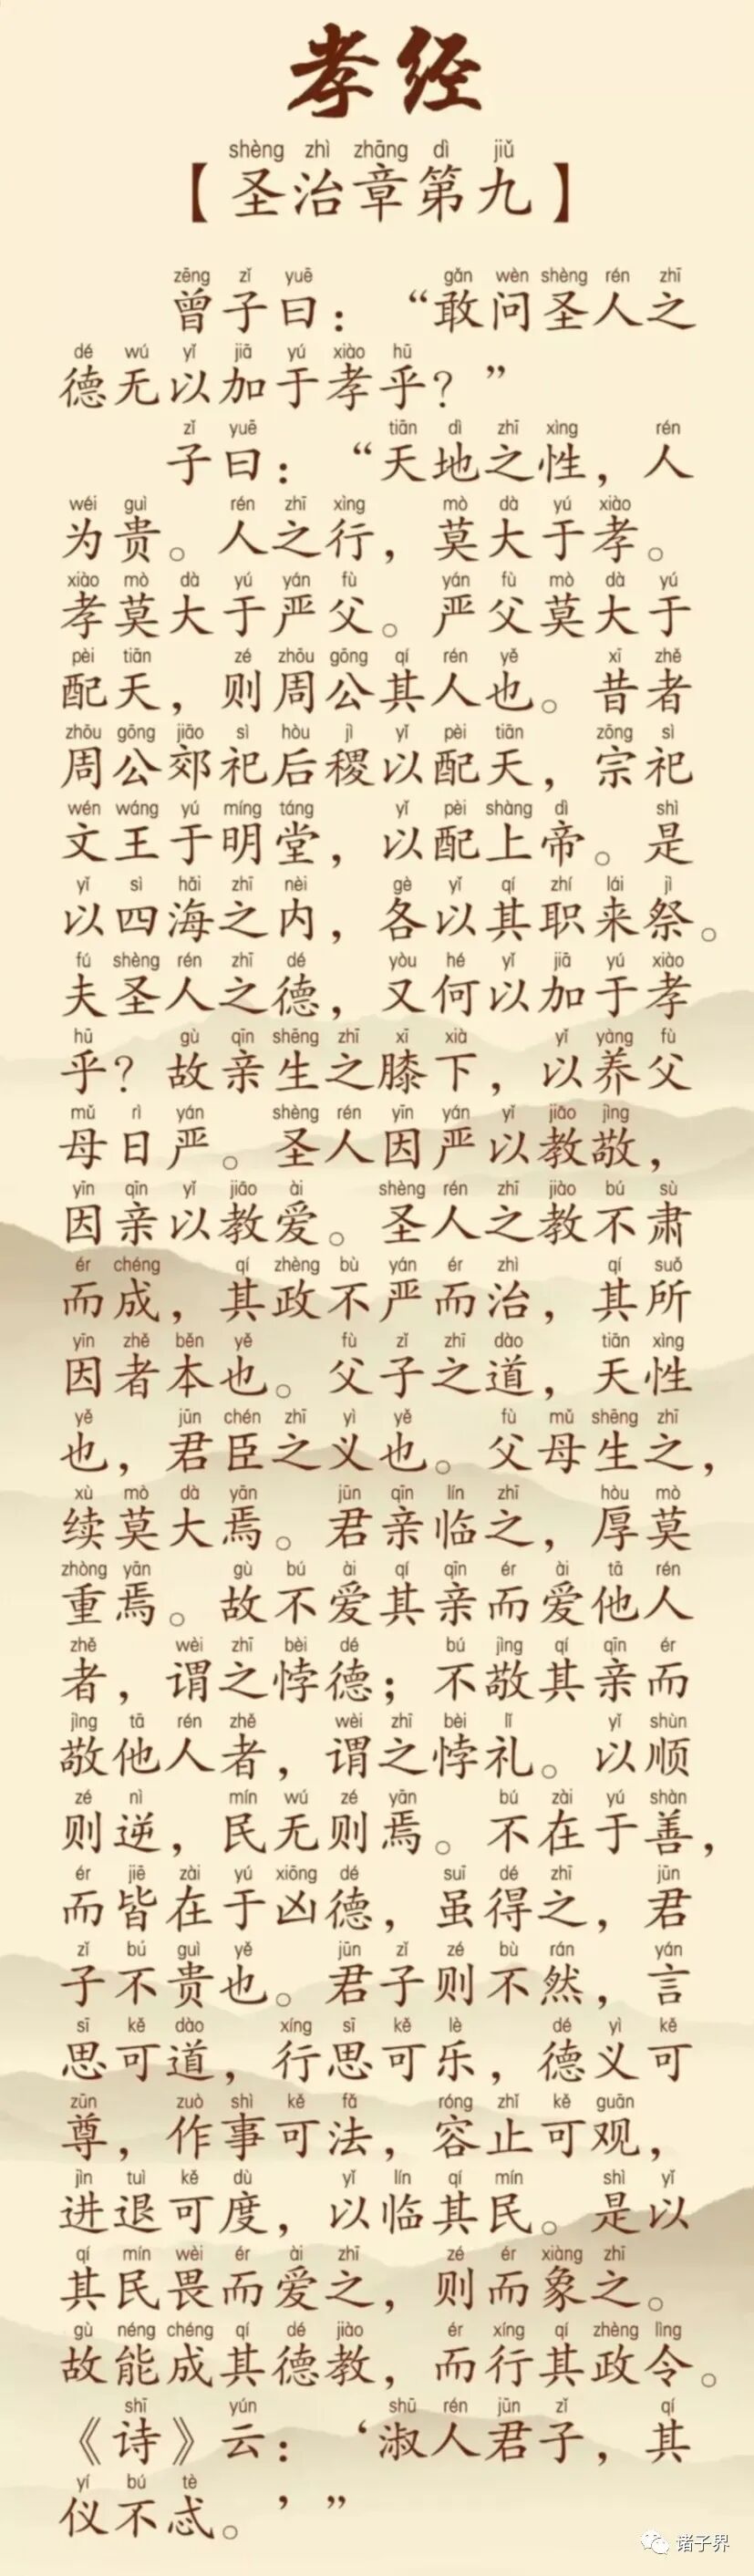 孝经
shèng zhì zhāng dì jiǔ
【圣治章第九】
zēng zǐ yuē gǎn wèn shèng rén zhī
曾子曰：“敢问圣人之
dé wú yǐ jiā yú xiào hū
德无以加于孝乎？”
zǐ yuē tiān dì zhī xìng rén
子曰：“天地之性，人
wéi guì rén zhī xìng mò dà yú xiào
为贵。人之行，莫大于孝。
xiào mò dà yú yán fù yán fù mò dà yú
孝莫大于严父。严父莫大于
pèi tiān zé zhōu gōng qí rén yě xī zhě
配天，则周公其人也。昔者
zhōu gōng jiāo sì hòu jì yǐ pèi tiān zōng sì
周公郊祀后稷以配天，宗祀
wén wáng yú míng táng yǐ pèi shàng dì shì
文王于明堂，以配上帝。是
yǐ sì hǎi zhī nèi gè yǐ qí zhí lái jì
以四海之内，各以其职来祭。
fú shèng rén zhī dé yòu hé yǐ jiā yú xiào
夫圣人之德，又何以加于孝
hū gù qīn shēng zhī xī xià yǐ yàng fù
乎？故亲生之膝下，以养父
mǔ rì yán shèng rén yīn yán yǐ jiāo jìng
母日严。圣人因严以教敬，
yīn qīn yǐ jiāo ài shèng rén zhī jiào bú sù
因亲以教爱。圣人之教不肃
ér chéng qí zhèng bù yán ér zhì qí suǒ
而成，其政不严而治，其所
yīn zhě běn yě fù zǐ zhī dào tiān xìng
因者本也。父子之道，天性
yě jūn chén zhī yì yě fù mǔ shēng zhī
也，君臣之义也。父母生之，
xù mò dà yān jūn qīn lín zhī hòu mò
续莫大焉。君亲临之，厚莫
zhòng yān gù bú ài qí qīn ér ài tā rén
重焉。故不爱其亲而爱他人
zhě wèi zhī bèi dé bú jìng qí qīn ér
者，谓之悖德；不敬其亲而
jìng tā rén zhě wèi zhī bèi lǐ yǐ shùn
敬他人者，谓之悖礼。以顺
zé nì mín wú zé yān bú zài yú shàn
则逆，民无则焉。不在于善，
ér jiē zài yú xiōng dé suī dé zhī jūn
而皆在于凶德，虽得之，君
zǐ bú guì yě jūn zǐ zé bù rán yán
子不贵也。君子则不然，言
sī kě dào xíng sī kě lè dé yì kě
思可道，行思可乐，德义可
zūn zuò shì kě fǎ róng zhǐ kě guān
尊，作事可法，容止可观，
jìn tuì kě dù yǐ lín qí mín shì yǐ
进退可度，以临其民。是以
qí mín wèi ér ài zhī zé ér xiàng zhī
其民畏而爱之，则而象之。
gù néng chéng qí dé jiào ér xíng qí zhèng lìng
故能成其德教，而行其政令。
shī yún shū rén jūn zǐ qí
《诗》云：‘淑人君子，其
yí bú tè
仪不忒。’”
诸子界